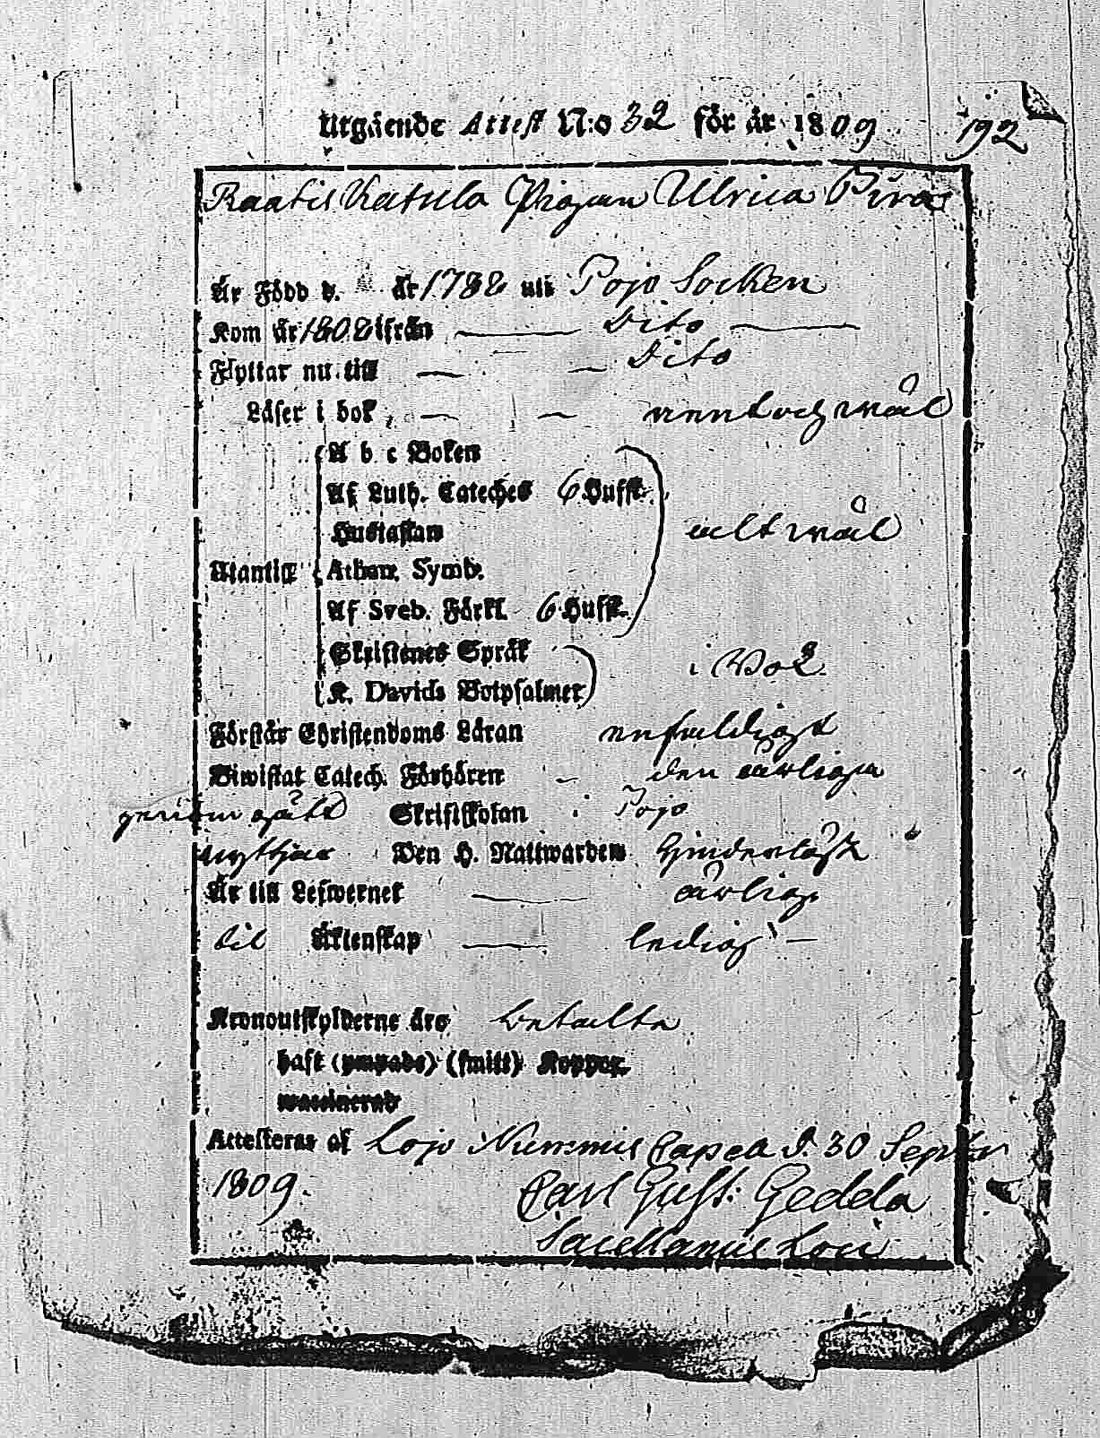 Utgående Attest N:o 32 för år 1809
192
Raatis Katula Pigan Ulrica
Är Född d. år 1788 uti Pojo Socken
Kom år 1808 ifrån Dito
Flyttar nu till Dito
Läser i bok, rent och wäl
A b c Boken
Af Luth. Cateches 6 Hufst.
Hustaflan allt wäl
Utantill Athan. Symb.
Af Sveb. Förkl. 6 Hufst.
Skriftenes Språk i Bok
K. Davids Botpsalmer
Förstår Christendoms Läran enfaldigt
Biwistat Catech. Förhören den årliga
genomgått Skriftskolan i Pojo
nyttjar Den H. Nattwarden
Är till Lefwernet ärlig
til Äktenskap ledig
Kronoutskylderne äro betalta
haft (ympade) (smitt) Koppor
waccinerad
Attesteras af Lojo Nummis Capell d. 30 Septbr
1809.
Carl Gust: Gedda
Sacellanus Loci